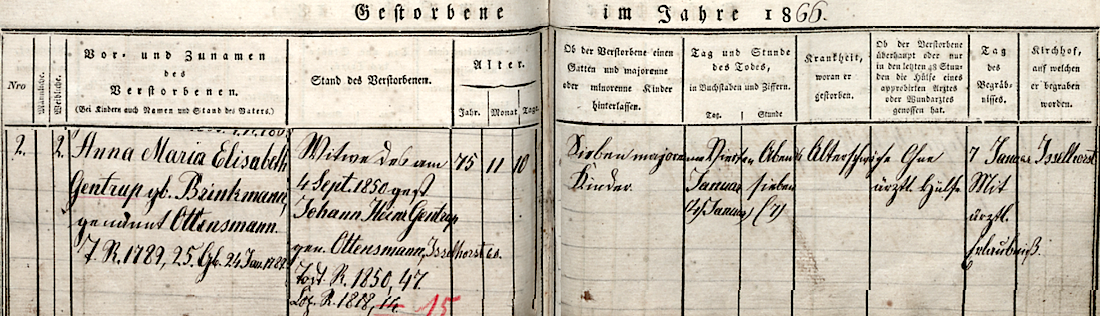 Gestorbene im Jahre 1866.
Nro
Männliche.
Weibliche.
Vor- und Zunamen
des
Verstorbenen.
(Bei Kindern auch Namen und Stand des Vaters.)
Stand des Verstorbenen.
Alter.
Jahr.
Monat
Tage
Ob der Verstorbene einen
Gatten und majorenne
oder minorenne Kinder
hinterlassen.
Tag und Stunde
des Todes,
in Buchstaben und Ziffern.
Tag.
Stunde
Krankheit,
woran er
gestorben.
Ob der Verstorbene
überhaupt oder nur
in den letzten 48 Stun-
den die Hülfe eines
approbirten Arztes
oder Wundarztes
genossen hat.
Tag
des
Begräb-
nisses.
Kirchhof,
auf welchen
er begraben
worden.
2.
2.
Anna Maria Elisabeth
Gentrup gb. Brinkmann,
genannt Ottensmann.
T. R. 1789, 25. Gb. 24 Jan. 1789
Witwe des am
4 Sept. 1850 gest
Johann Heinr Gentrup
gen. Ottensmann, Isselhorst 60.
Todt. R. 1850, 47.
Cop. R. 1818, 14. 15
75
11
10
Sieben majorenne
Kinder.
Vierten
Januar
(4) Januar
Abends
sieben
(7)
Altersschwäche
Ohne
ärztl. Hülfe
7 Januar
Mit
ärztl.
Erlaubniß.
Isselhorst